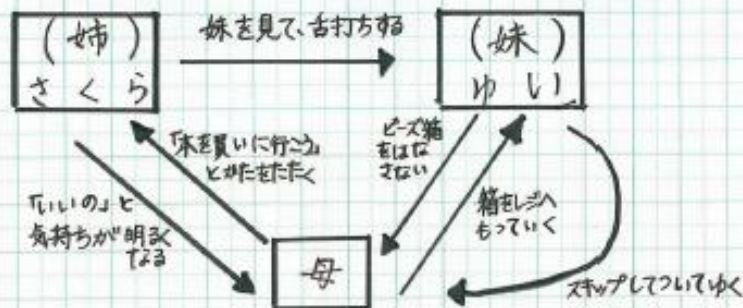 (姉)
さくら
妹を見て、舌打ちする
(妹)
ゆい
「本を買いに行こう」
とかたをたたく
ビーズ箱
をはな
さない
「いいの」と
気持ちが明るく
なる
箱をレジへ
もっていく
母
スキップしてついてゆく